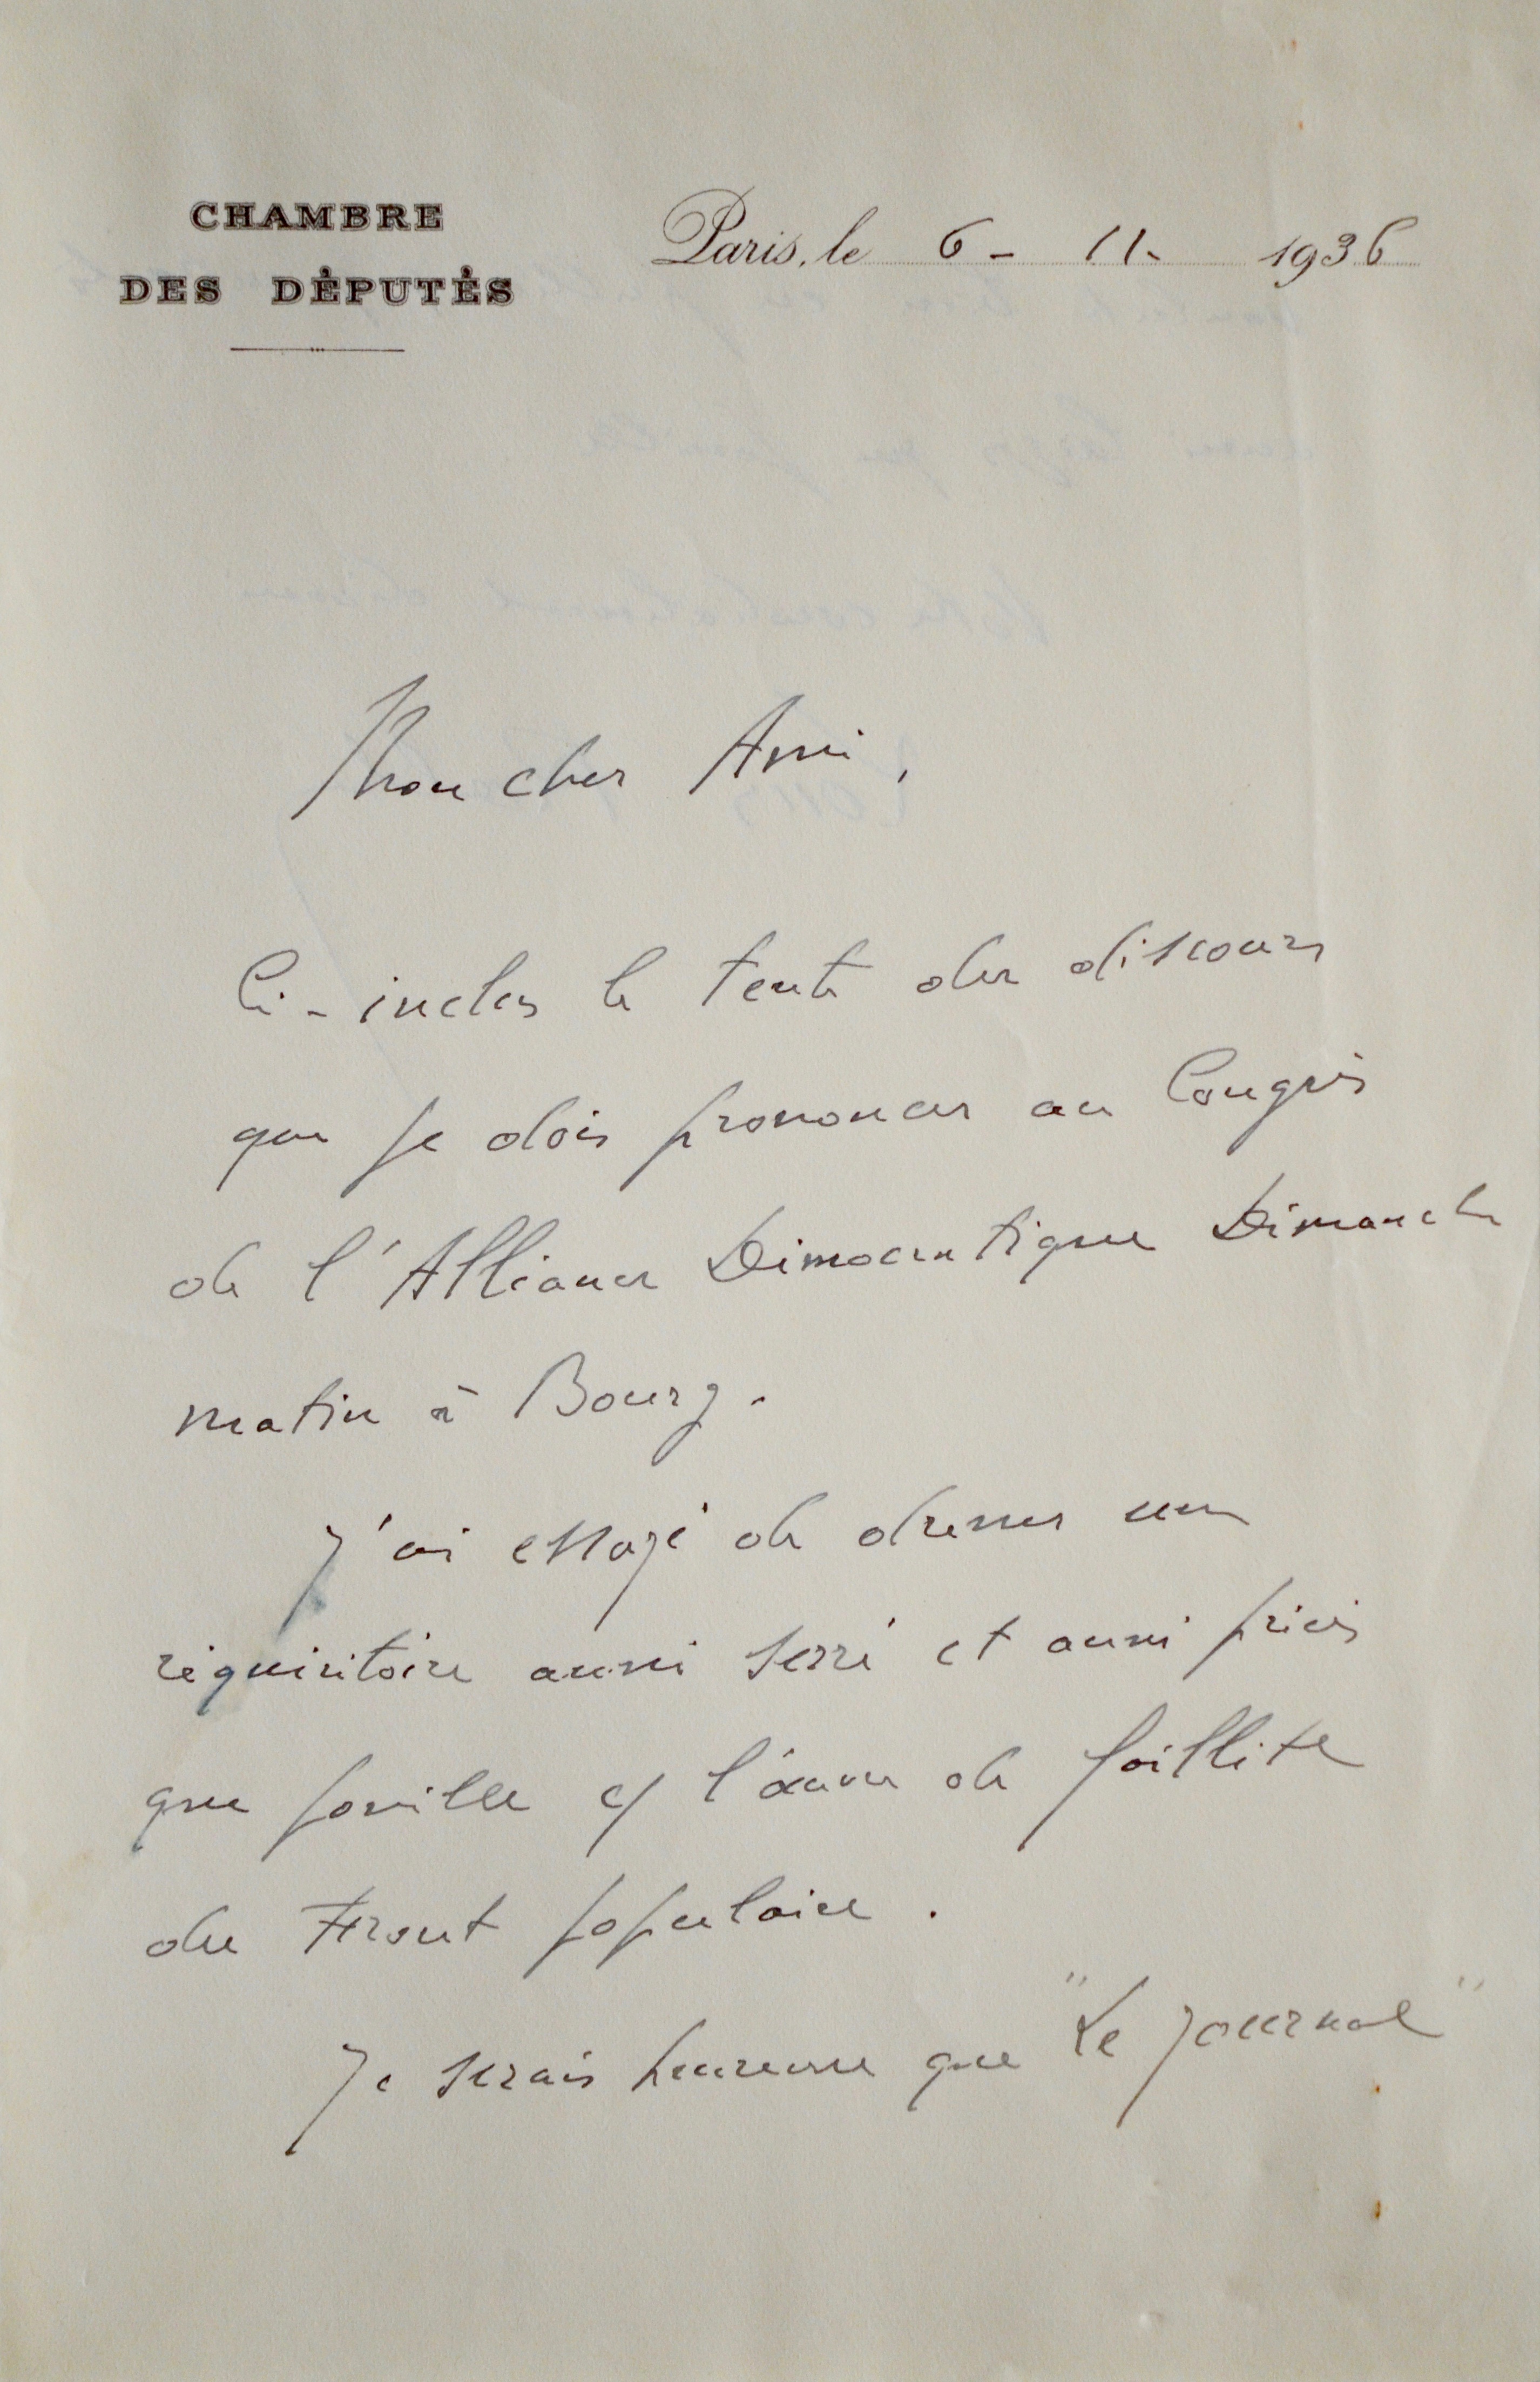 CHAMBRE
DES DÉPUTÉS
Paris, le 6 - 11 - 1936
Mon cher Ami,
Ci-inclus le texte du discours
que je dois prononcer au Congrès
de l'Alliance Démocratique Dimanche
matin à Bourg.
J'ai essayé de dresser un
réquisitoire aussi serré et aussi précis
que possible de l'œuvre de faillite
du Front populaire.
Je serais heureux que "Le Journal"